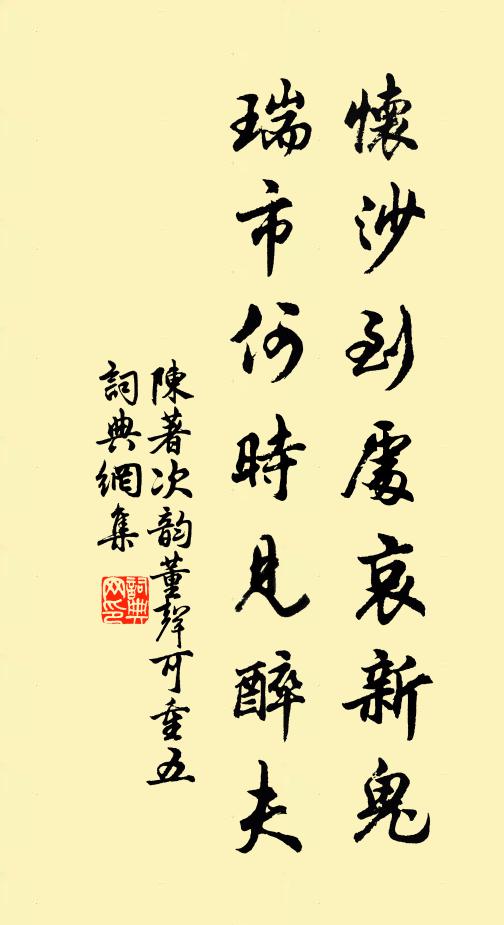 懷沙到處哀新鬼
瑞市何時見醉夫
陳著次韵董聲可重五
詞典網集
詞典
网印